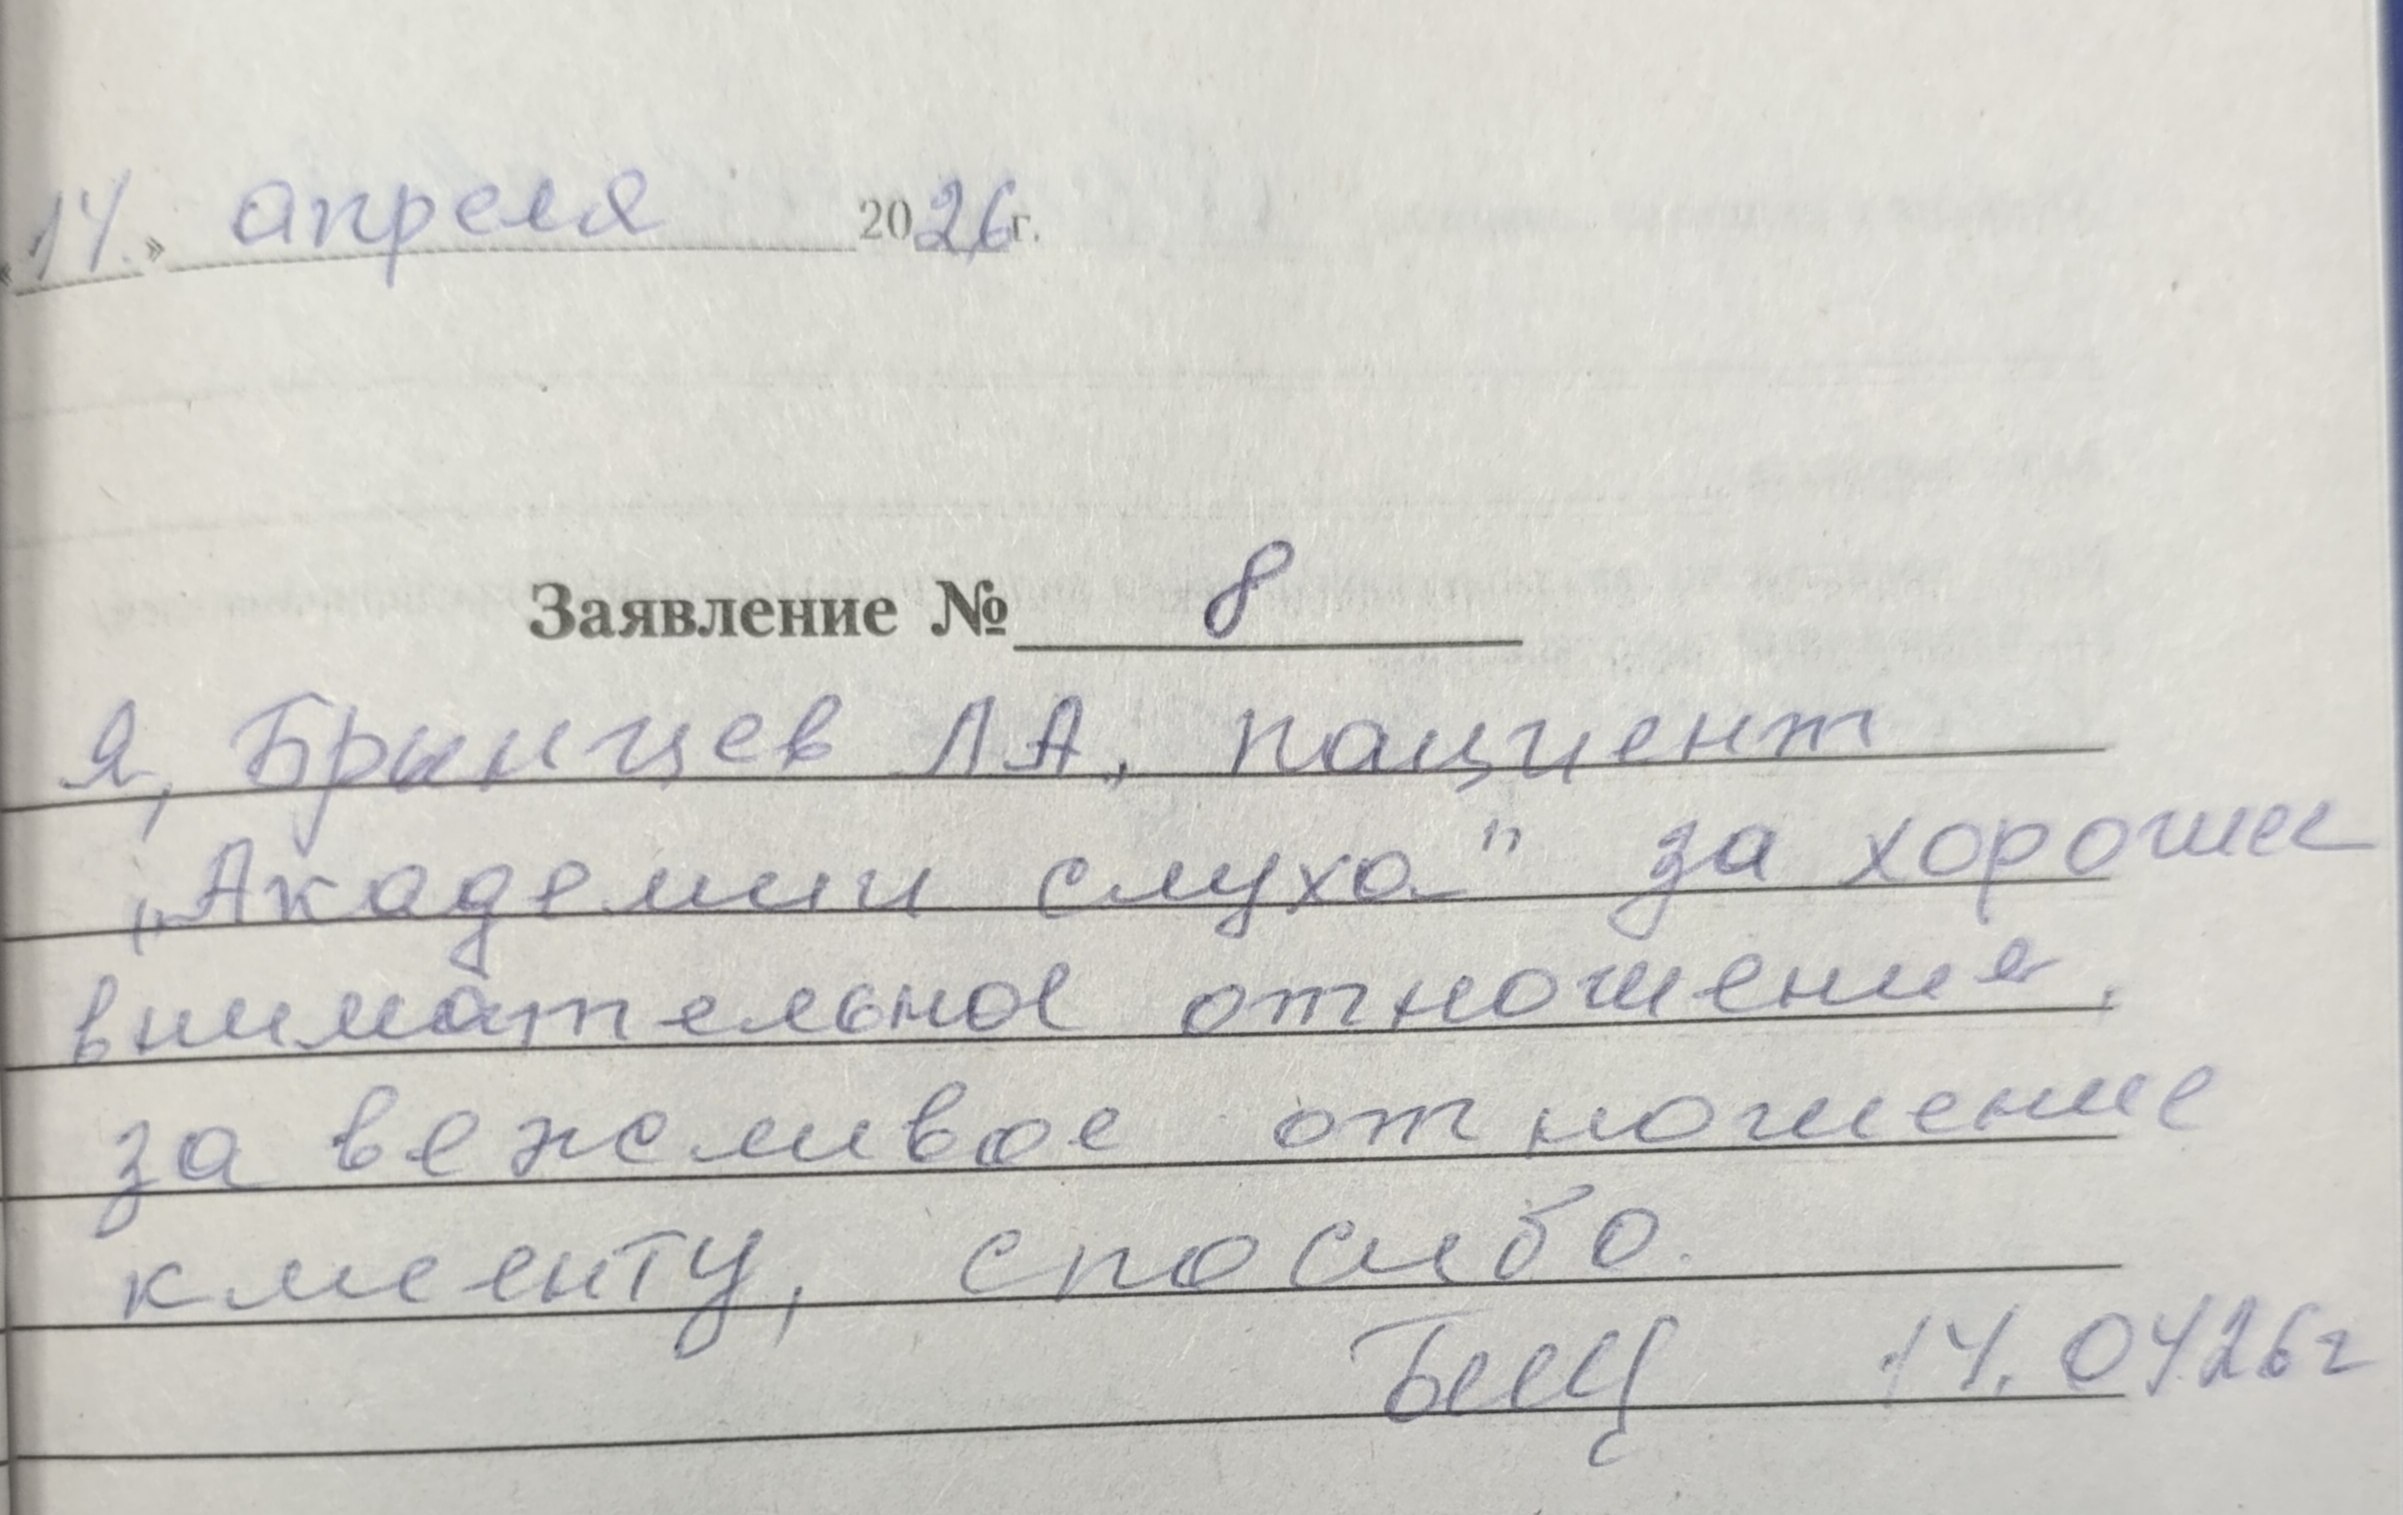 «14.» апреля 2026г.
Заявление № 8
Я, Брынцев Л А, пациент
„Академии слуха" за хорошее
внимательное отношения,
за вежливое отношение
клиенту, спасибо.
14.0426г